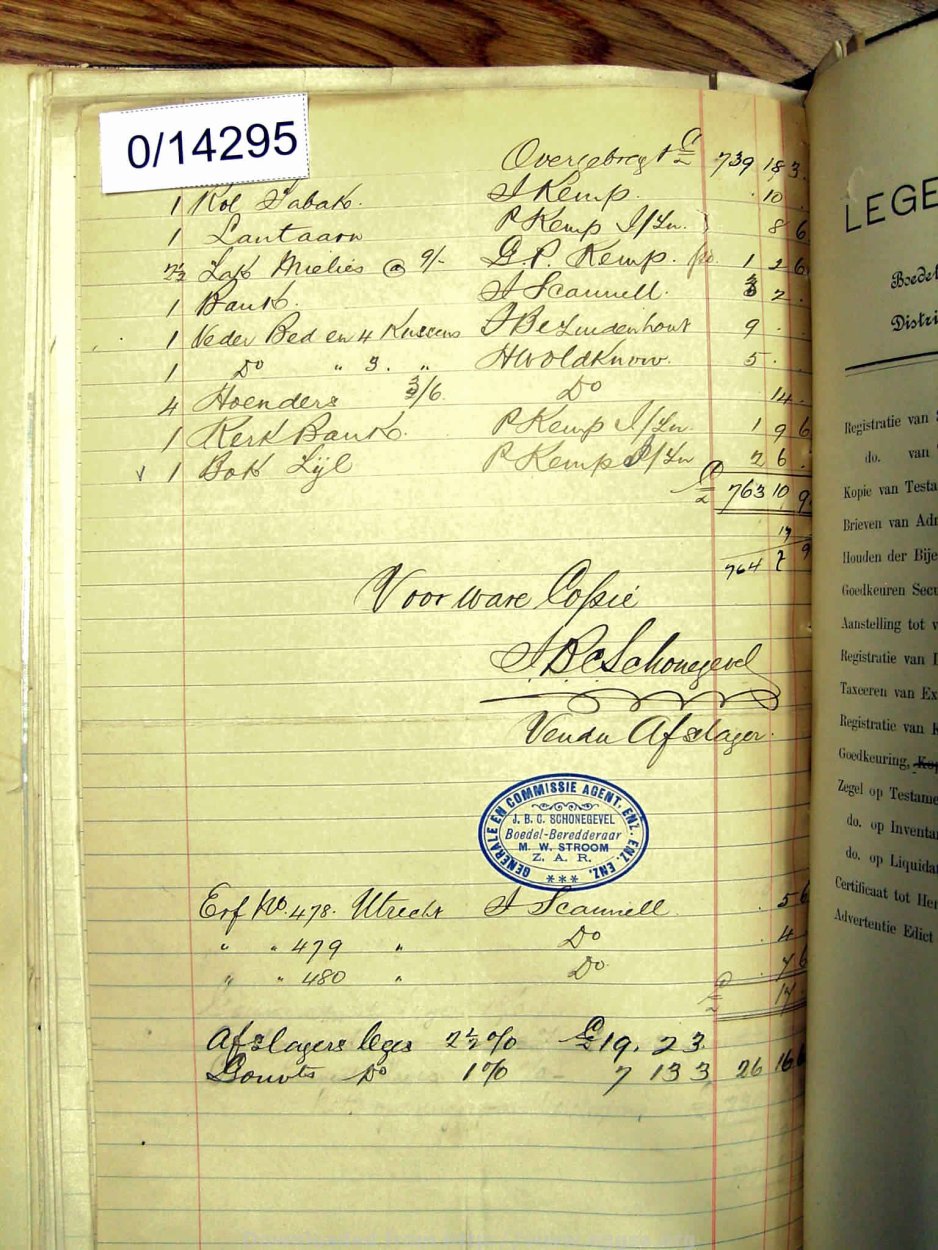 0/14295
Overgebragt £ 739 18 3
1 Rol Tabak. J Kemp. 10
1 Lantaarn P Kemp J/Zn. 8 6
2½ Zak Mielies @ 9/- G.P. Kemp. 1 2 6
1 Bank. J Scannell. 2
1 Veder Bed en 4 Kussens J Bezuidenhout 9
1 Do " 3. " H Woldknow. 5
4 Hoenders 3/6 Do 14
1 Kerk Bank. P Kemp J/Zn. 1 9 6
1 Bok Zijl P Kemp J/Zn 2 6
£ 763 10 9
17
764 7 9
Voor ware Copie
J.B.C. Schonegevel
Vendu Afslager.
GENERALE EN COMMISSIE AGENT, ENZ. ENZ. ENZ.
J. B. C. SCHONEGEVEL
Boedel-Beredderaar
M. W. STROOM
Z. A. R.
***
Erf No. 478. Utrecht J Scannell 5 6
" " 479 " Do 4
" " 480 " Do 7 6
£ 17
Afslagers leges 2½ % £19. 2 3
Gouvts Do 1% 7 13 3 26 16 6
LEGE
Boedel
Distri
Registratie van
do. van
Kopie van Testa
Brieven van Adm
Houden der Bije
Goedkeuren Secu
Aanstelling tot v
Registratie van
Taxeeren van Ex
Registratie van
Goedkeuring, Kop
Zegel op Testame
do. op Inventar
do. op Liquidat
Certificaat tot Her
Advertentie Edict